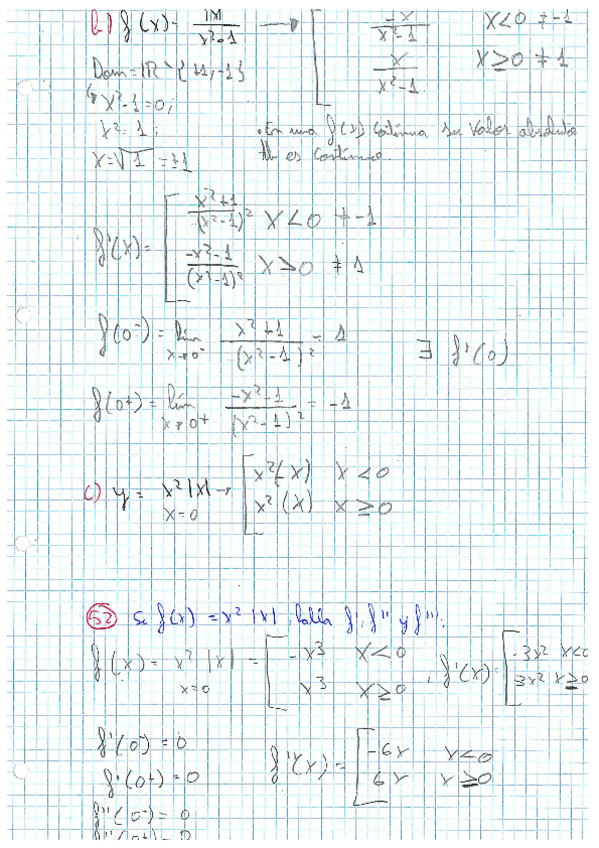 b) f(x) = |x| / x²-1 → [ -x / x²-1   x<0 ≠ -1
x / x²-1   x≥0 ≠ 1
Dom = ℝ \ {+1, -1}
↳ x²-1 = 0;
x² = 1;
x = √1 = ±1
. En una f(x) continua su valor absoluto
es continuo.
f'(x) = [ x²+1 / (x²-1)²   x<0 ≠ -1
-x²-1 / (x²-1)²   x>0 ≠ 1
f(0⁻) = lím x→0⁻ x²+1 / (x²-1)² = 1
∃ f'(0)
f(0⁺) = lím x→0⁺ -x²-1 / (x²-1)² = -1
c) y = x²|x| → [ x²(-x)   x<0
x=0   x²(x)   x≥0
52 Si f(x) = x²|x|, halla f', f'' y f'''.
f(x) = x²|x| = [ -x³   x<0 , f'(x) = [ -3x²   x<0
x=0   x³   x≥0   3x²   x≥0
f'(0⁻) = 0
f'(0⁺) = 0
f''(x) = [ -6x   x<0
6x   x≥0
f''(0⁻) = 0
f''(0⁺) = 0